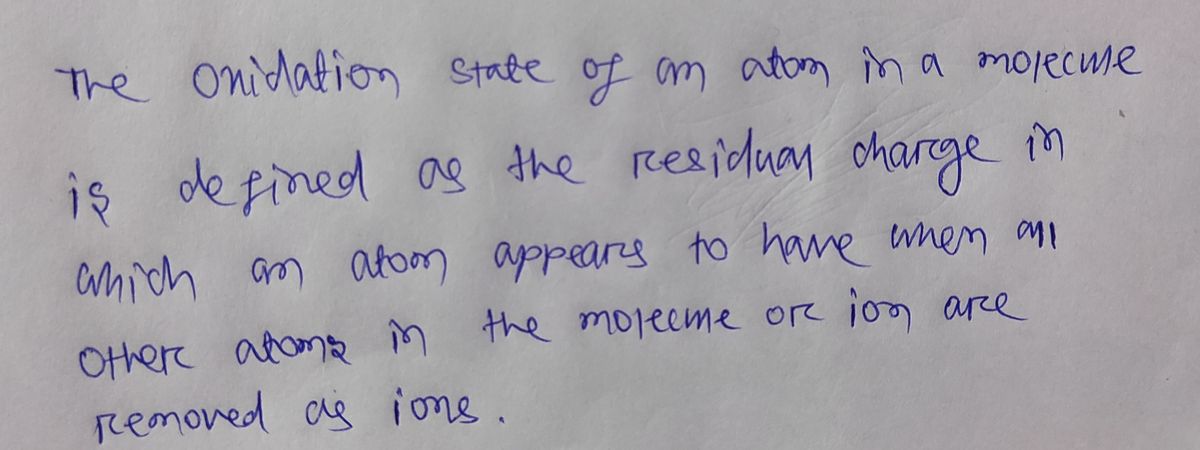 The Oxidation state of an atom in a molecule
is defined as the residual charge in
which an atom appears to have when all
other atoms in the molecule or ion are
removed as ions.